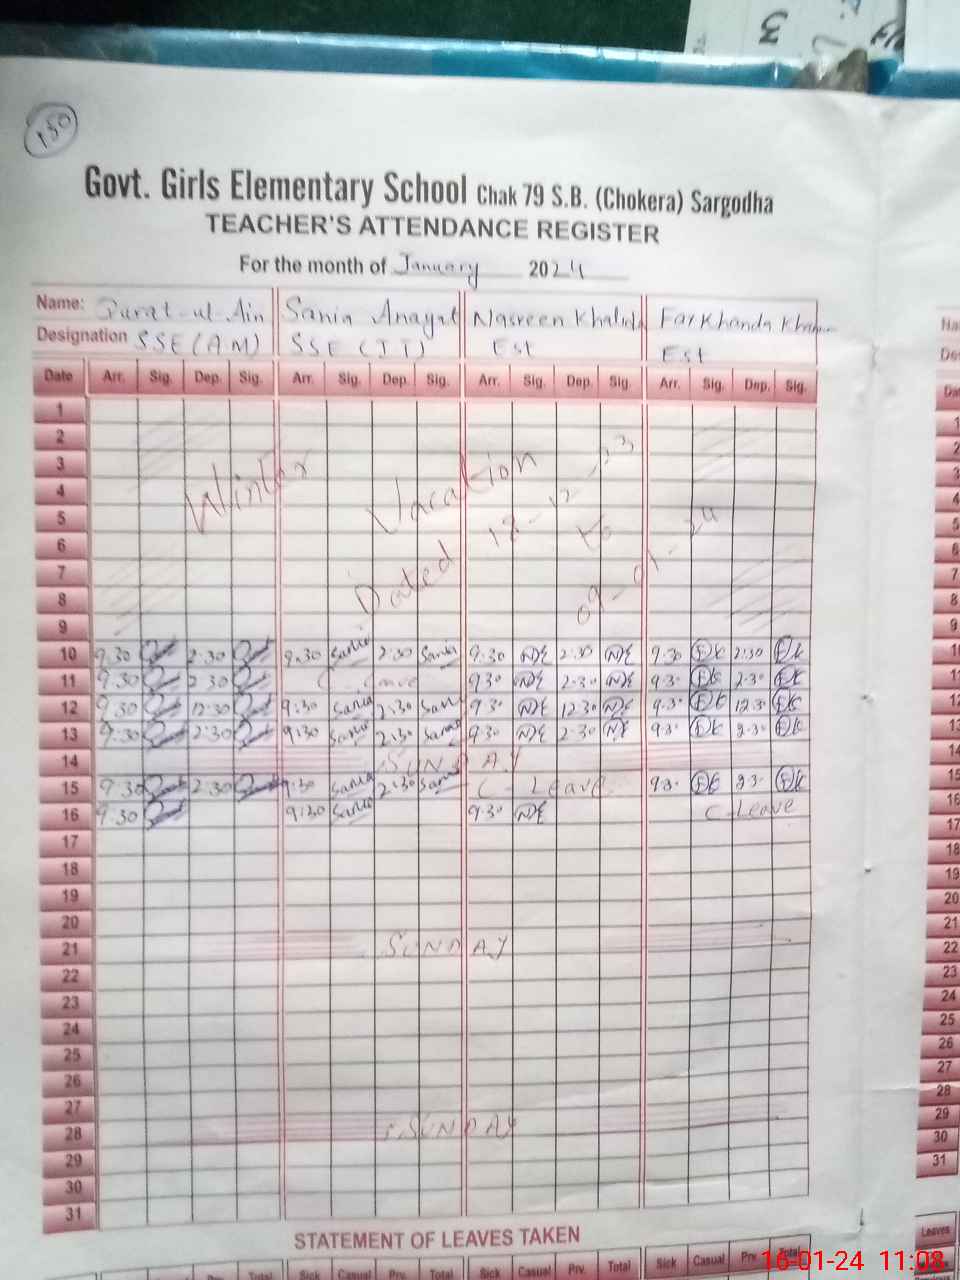 150
Govt. Girls Elementary School Chak 79 S.B. (Chokera) Sargodha
TEACHER'S ATTENDANCE REGISTER
For the month of January 2024
Name: Qurat-ul-Ain Sania Anayat Nasreen Khalida Farkhanda Khanum
Designation SSE (A.M) SSE (IT) Est Est
Date Arr. Sig. Dep. Sig. Arr. Sig. Dep. Sig. Arr. Sig. Dep. Sig. Arr. Sig. Dep. Sig.
1
2
3
4
5
6
7
8
9
Winter Vacation
Dated 18-12-23 to 09-01-24
10 9.30 2:30 9:30 Sania 2:30 Sania 9:30 2:30 9.30 2:30
11 9.30 2 30 C. Leave 9 30 2.30 9.3. 2.3.
12 9.30 12:30 9:30 Sania 2:30 Sania 9.3. 12.30 9.3. 12.3.
13 9:30 2:30 9:30 Sania 2:30 Sania 9.3. 2.30 9.3. 2.3.
14 SUNDAY
15 9.30 2:30 9:30 Sania 2:30 Sania C - Leave 9.3. 2.3.
16 9:30 9:30 Sania 9.3. C-Leave
17
18
19
20
21 SUNDAY
22
23
24
25
26
27
28 SUNDAY
29
30
31
STATEMENT OF LEAVES TAKEN
Total Sick Casual Prv. Total Sick Casual Prv. Total Sick Casual Prv. Total
Leaves
16-01-24 11:08